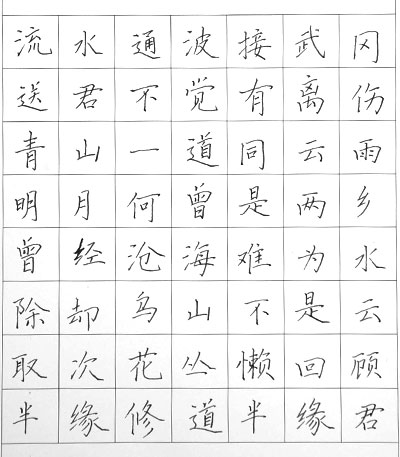 流水通波接武冈
送君不觉有离伤
青山一道同云雨
明月何曾是两乡
曾经沧海难为水
除却乌山不是云
取次花丛懒回顾
半缘修道半缘君